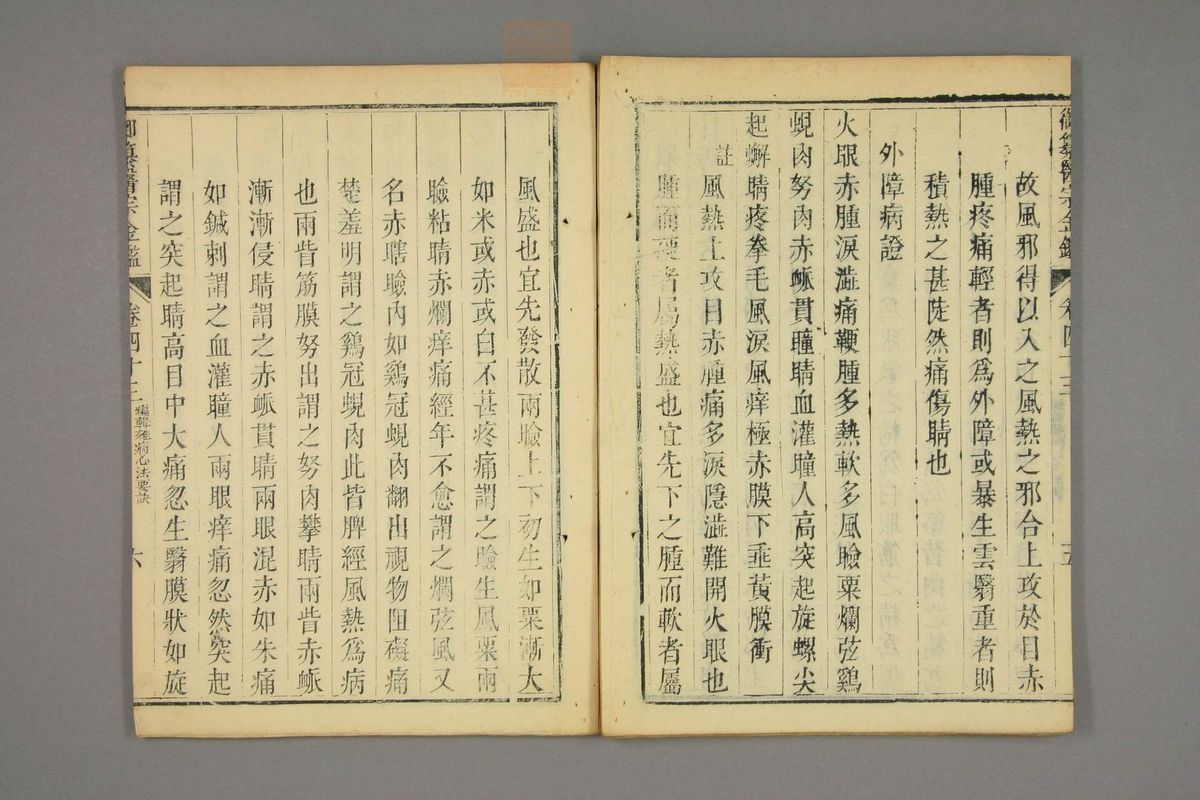 御纂醫宗金鑑
卷四十三
五
故風邪得以入之風熱之邪合上攻於目赤
腫疼痛輕者則爲外障或暴生雲翳重者則
積熱之甚陡然痛傷睛也
外障病證
火眼赤腫淚澁痛鞕腫多熱軟多風瞼粟爛弦鷄
蜆肉努肉赤脈貫瞳睛血灌瞳人高突起旋螺尖
起蠏睛疼拳毛風淚風痒極赤膜下垂黃膜衝
註風熱上攻目赤腫痛多淚隱澁難開火眼也
腫而硬者屬熱盛也宜先下之腫而軟者屬
風盛也宜先發散兩瞼上下初生如粟漸大
如米或赤或白不甚疼痛謂之瞼生風粟兩
瞼粘睛赤爛痒痛經年不愈謂之爛弦風又
名赤瞎瞼內如鷄冠蜆肉翻出視物阻礙痛
楚羞明謂之鷄冠蜆肉此皆脾經風熱爲病
也兩眥筋膜努出謂之努肉攀睛兩眥赤脈
漸漸侵睛謂之赤脈貫睛兩眼混赤如朱痛
如鍼刺謂之血灌瞳人兩眼痒痛忽然突起
謂之突起睛高目中大痛忽生翳膜狀如旋
御纂醫宗金鑑
卷四十三
編輯雜病心法要訣
六